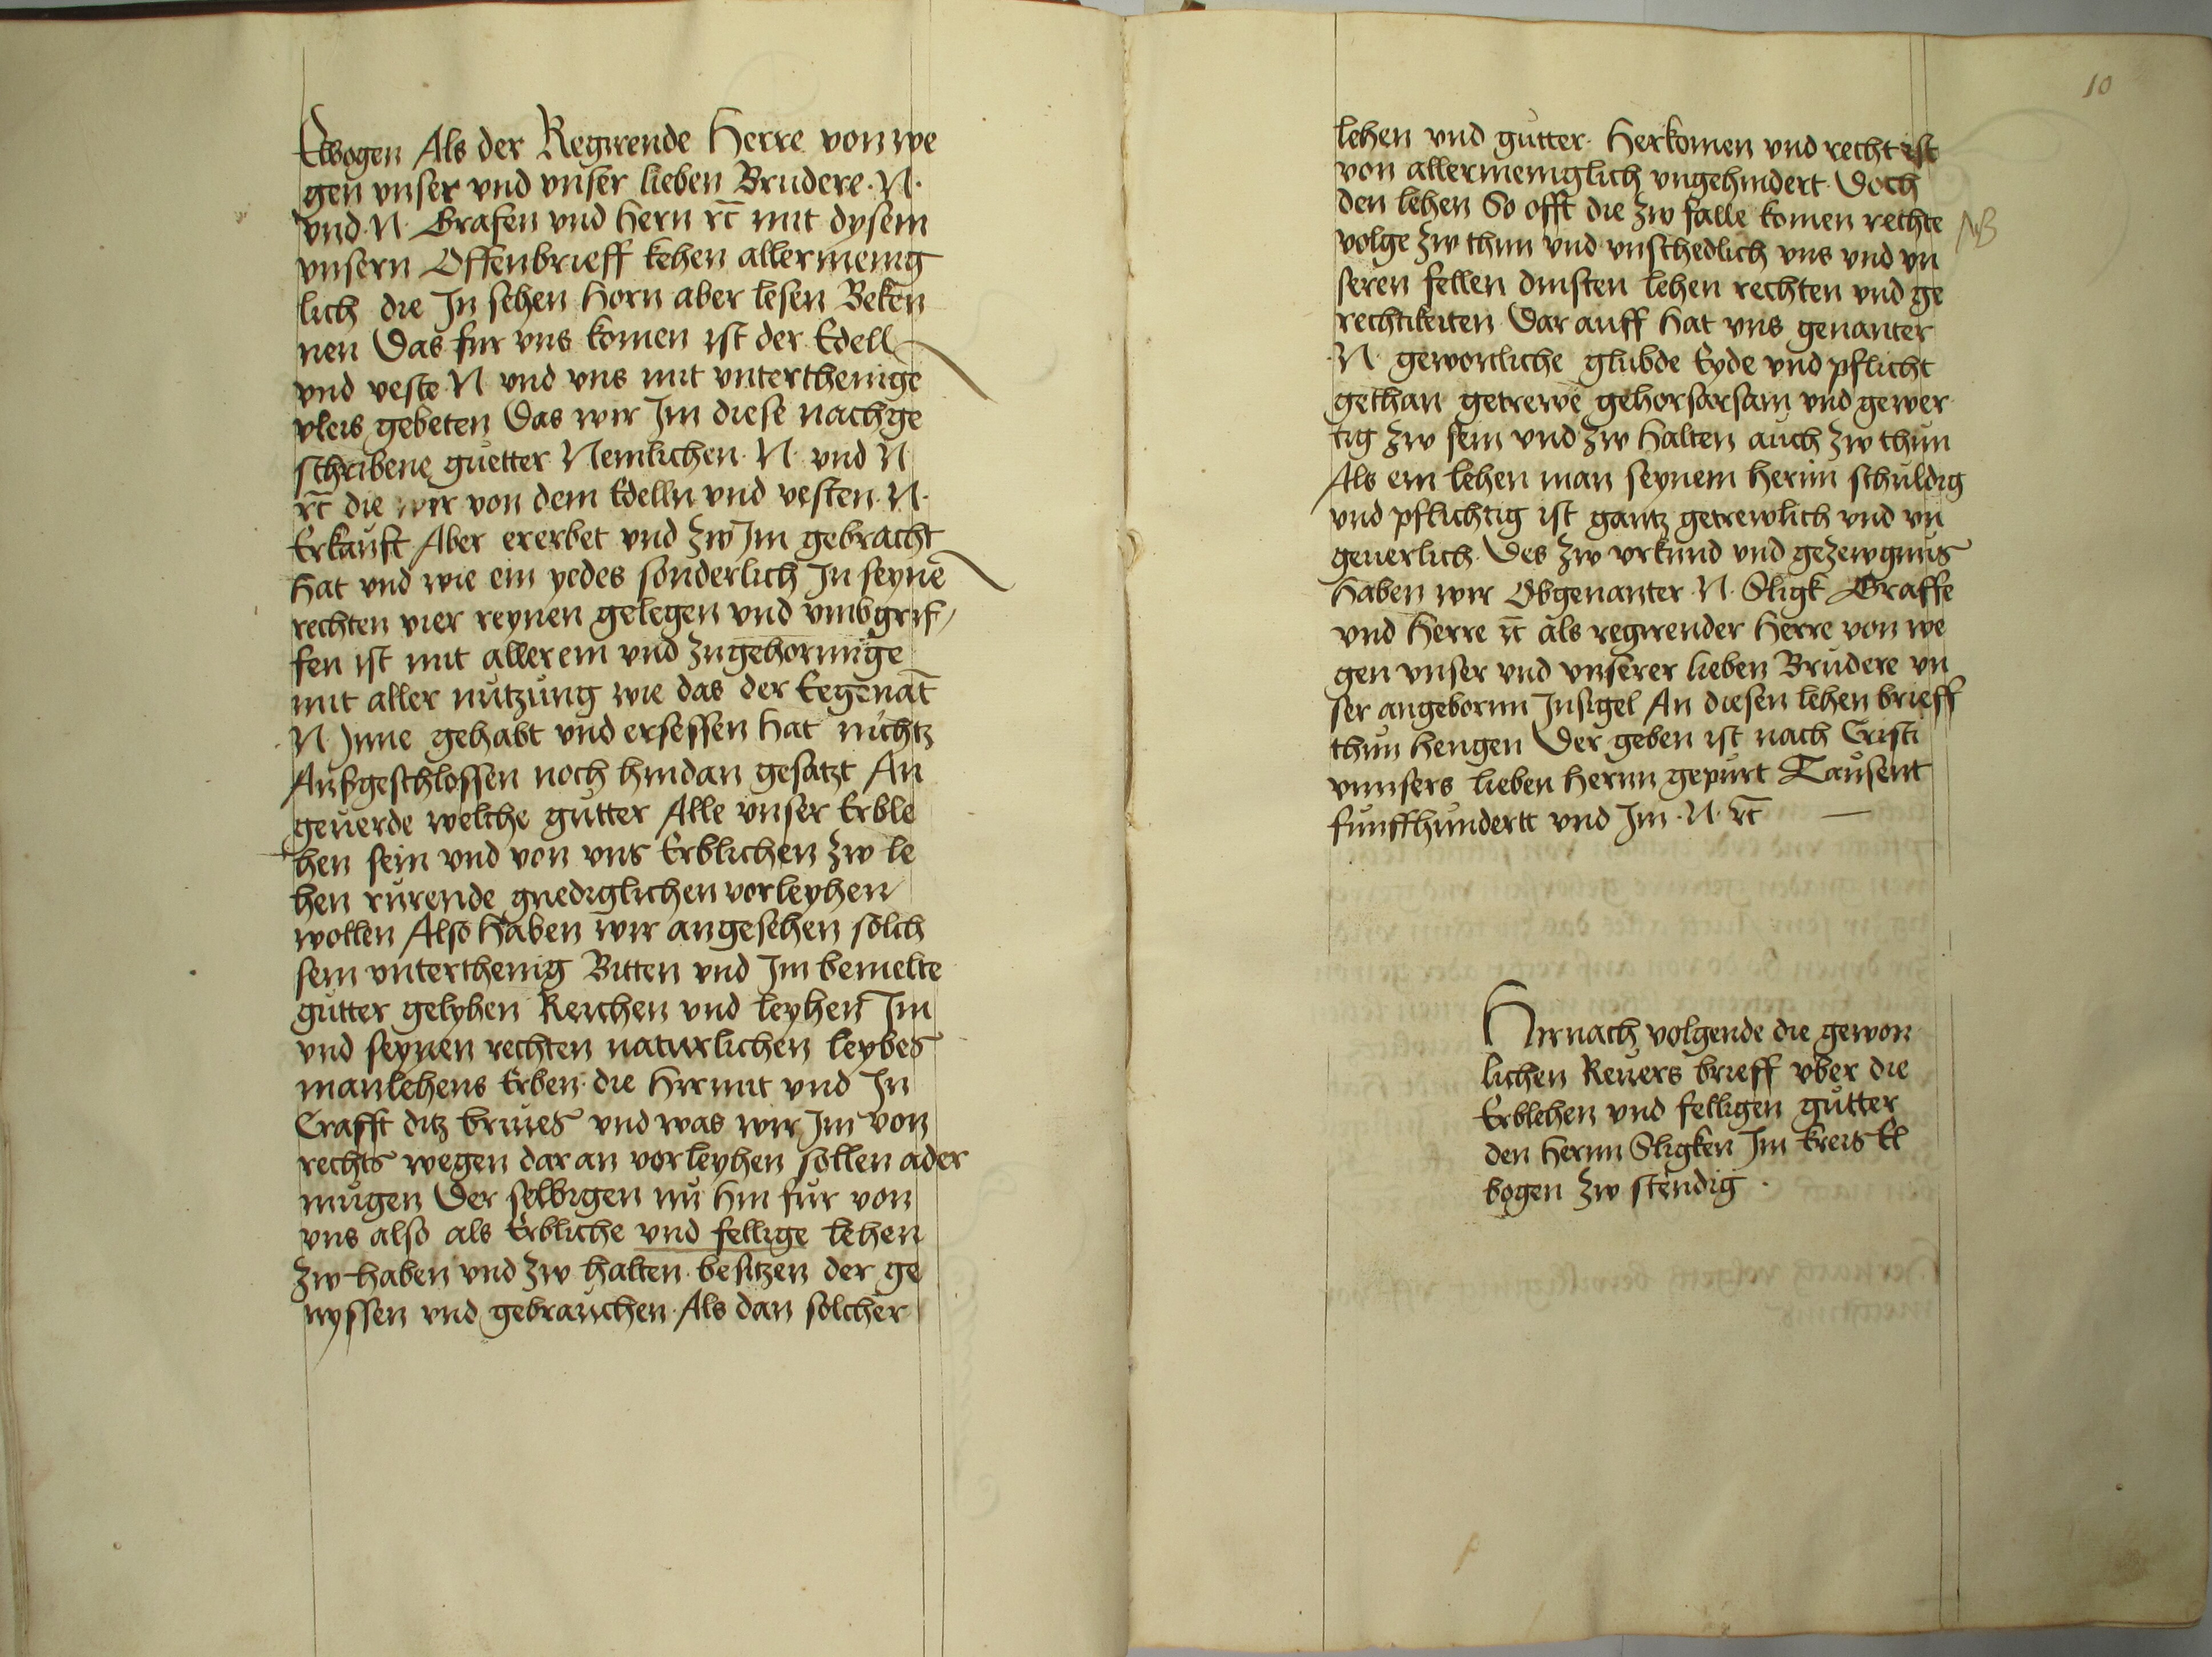 Elbogen Als der Regirende Herre von we
gen vnser vnd vnser lieben Brudere. N.
vnd. N. Grafen vnd Hern rc mit dysem
vnsern Offenbrieff kehen allermenig
lich die In sehen Horn aber lesen Beken
nen Das fur vns komen ist der Edell
vnd veste N vnd vns mit vnterthenige
vleis gebeten Das wir Im diese nachge
schribene guetter Nemlichen. N. vnd N
rc die wir von dem Edelln vnd vesten. N.
Erkauft Aber ererbet vnd Zw Im gebracht
Hat vnd wie ein yedes sonderlich In seyne
rechten vier reynen gelegen vnd vmbgrif/
fen ist mit aller ein vnd Zugehorunge
mit aller nutzung wie das der Eegenat
N Inne gehabt vnd ersessen Hat nichtz
Außgeschlossen noch hindan gesatzt An
geuerde welche gutter Alle vnser Erble
hen sein vnd von vns Erblichen Zw le
hen rurende gnediglichen vorleyhen
wollen Also Haben wir angesehen solch
sein vnterthenig Bitten vnd Im bemelte
gutter gelyhen Reichen vnd leyhen Im
vnd seynen rechten naturlichen leybes
manlehens Erben. die Hirmit vnd In
Crafft ditz briues vnd was wir Im von
rechts wegen dar an vorleyhen sollen ader
mugen Der selbigen nu hin fur von
vns also als Erbliche vnd fellige lehen
Zw haben vnd Zw halten. besitzen der ge
nyssen vnd gebrauchen. Als dan solcher
10
lehen vnd gutter. Herkomen vnd recht ist
von allermeniglich vngehindert. Doch
den lehen So offt die Zw falle komen rechte
NB
volge Zw thun vnd vnschedlich vns vnd vn
seren fellen dinsten lehen rechten vnd ge
rechtikeiten Dar auff Hat vns genanter
.N. gewonliche glubde Eyde vnd pflicht
gethan getrewe gehorsarsam vnd gewer
tig Zw sein vnd Zw Halten auch Zw thun
Als ein lehen man seynem Hernn schuldig
vnd pflichtig ist gantz getrewlich vnd vn
geuerlich. Des Zw vrkund vnd geZewgnus
Haben wir Obgenanter. N. Sligk Graffe
vnd Herre rc als regirender Herre von we
gen vnser vnd vnserer lieben Brudere vn
ser angebornn Insigel An diesen lehen brieff
thun Hengen Der geben ist nach Cristi
vnnsers lieben Hernn gepurt Tausent
funffhundertt vnd Im. N. rc
Hirnach volgende die gewon
lichen Reuers brieff vber die
Erblehen vnd felligen gutter
den Hernn Sligken Im kreis El
bogen Zw stendig.